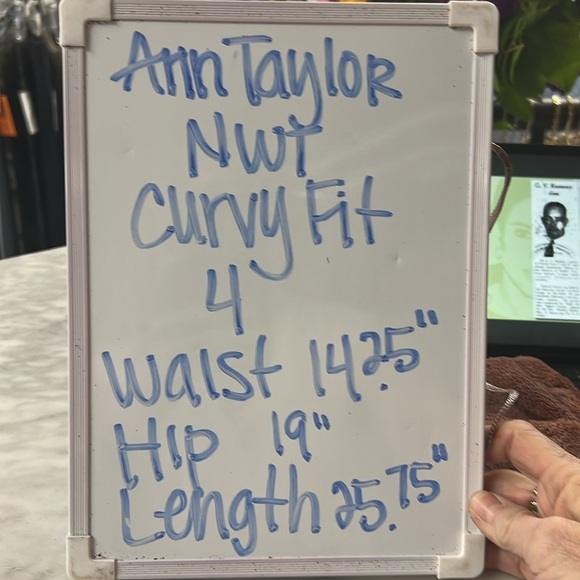 Ann Taylor
NWT
Curvy Fit
4
Waist 14.25"
Hip 19"
Length 25.75"
G. V. Ramsey